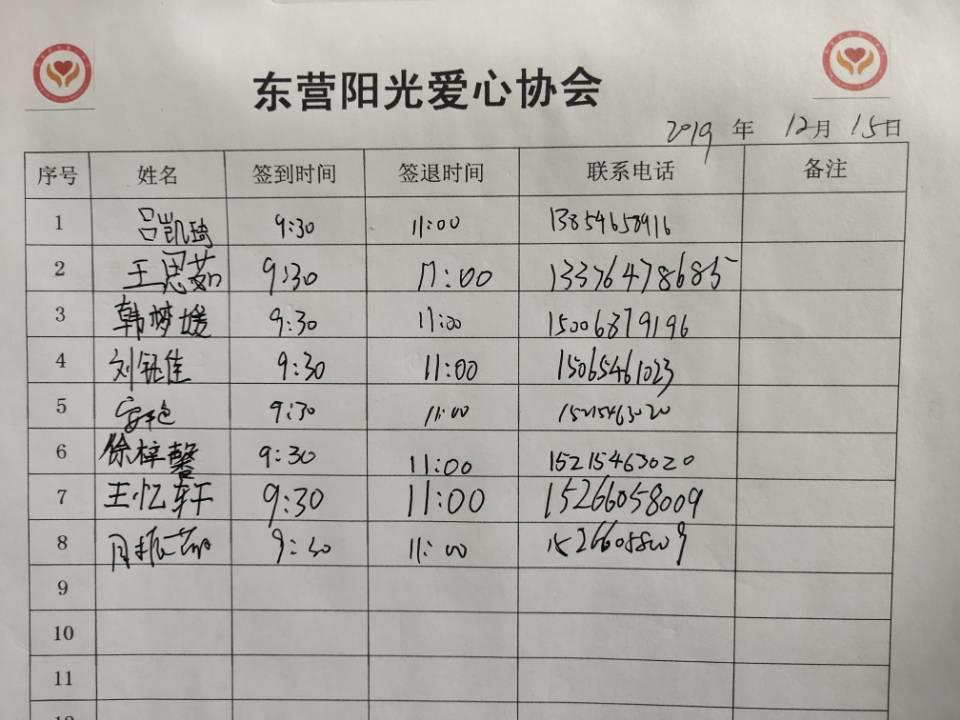 东营阳光爱心协会
2019 年 12月 15日
序号 姓名 签到时间 签退时间 联系电话 备注
1 吕凯琦 9:30 11:00 13854658916
2 王思茹 9:30 11:00 13376478685
3 韩梦媛 9:30 11:00 15006879196
4 刘钰佳 9:30 11:00 15065461023
5 9:30 11:00 15215463020
6 徐梓馨 9:30 11:00 15215463020
7 王忆轩 9:30 11:00 15266058009
8 9:30 11:00 15266058009
9
10
11